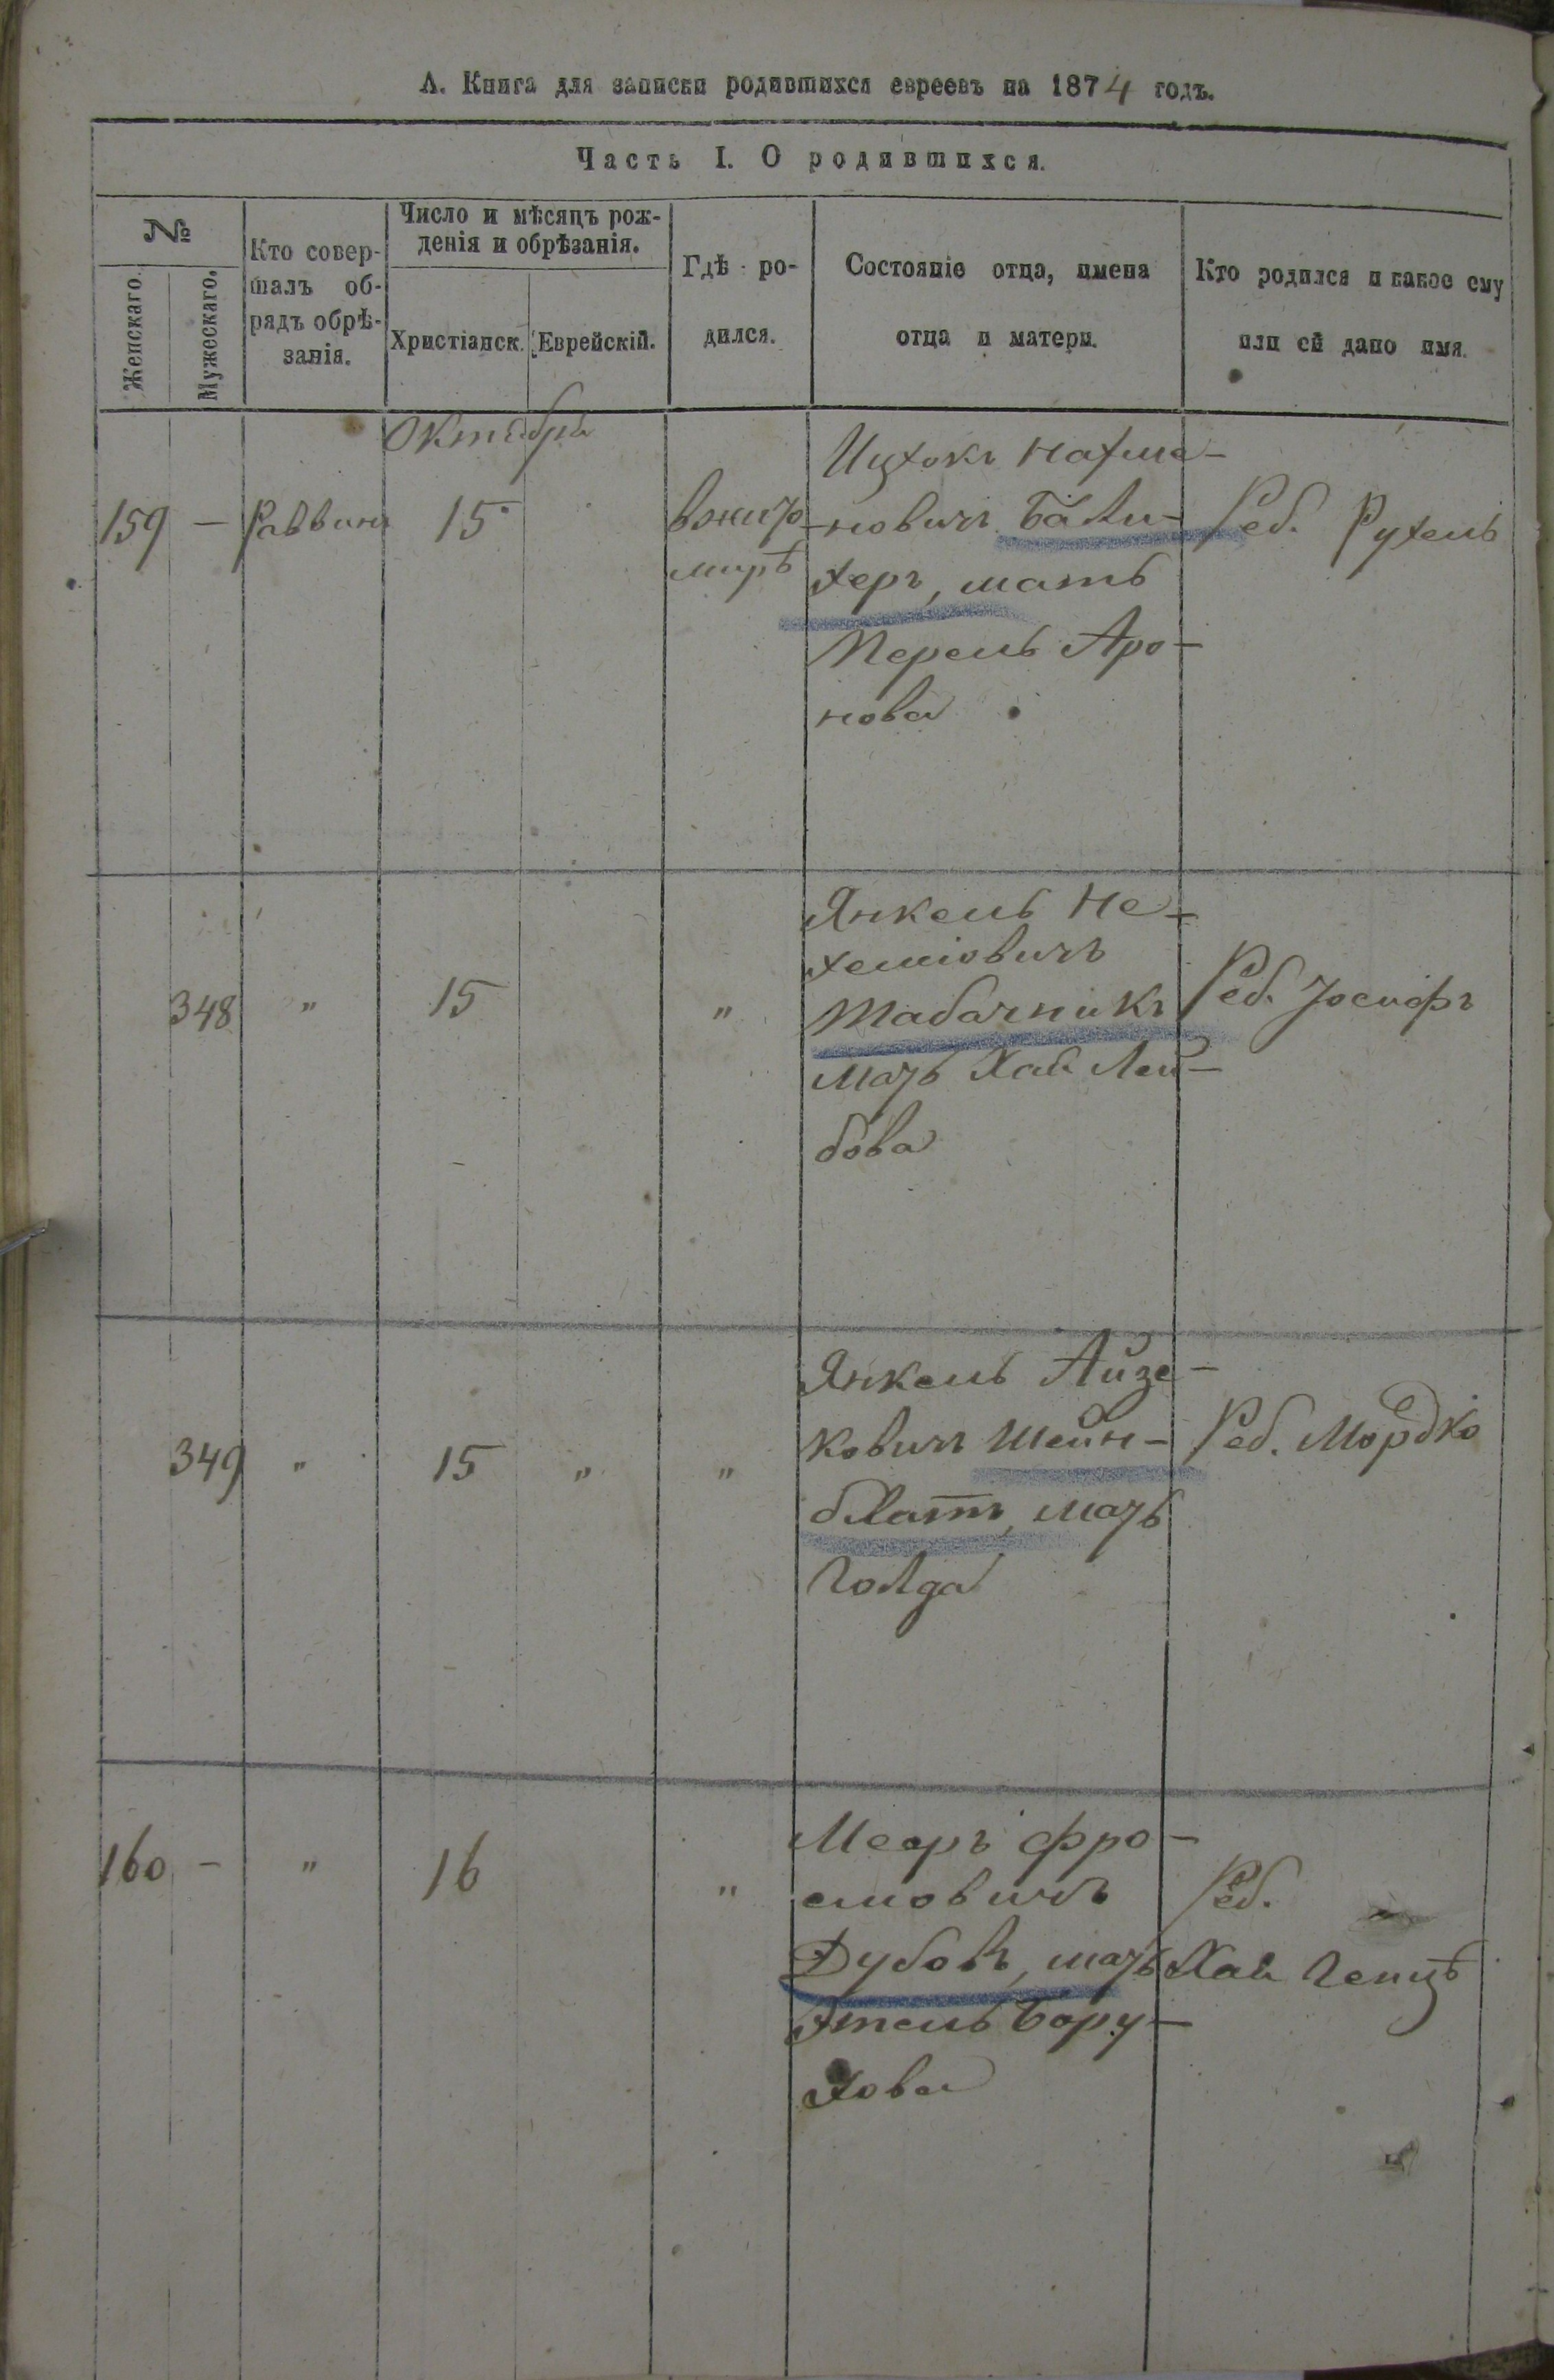 А. Книга для записки родившихся евреевъ на 1874 годъ.
Часть I. О родившихся.
№
Женскаго.
Мужескаго.
Кто совер-
шалъ об-
рядъ обрѣ-
занія.
Число и мѣсяцъ рож-
денія и обрѣзанія.
Христіанск.
Еврейскій.
Гдѣ ро-
дился.
Состояніе отца, имена
отца и матери.
Кто родился и какое ему
или ей дано имя.
Октября
159 — Раввинъ 15
в жито
мирѣ
Ицхокъ Нахма-
новичъ Бали-
херъ, мать
Перель Аро-
нова
Реб. Рухель
348 " 15 "
Янкель Не-
хеміовичъ
Табачникъ
мать Хая Лей-
бова
Реб. Іосифъ
349 " 15 " "
Янкель Айзе-
ковичъ Шейн-
блатъ, мать
Голда
Реб. Мордко
160 — " 16 "
Мееръ Фро-
емовичъ
Дубовъ, мать
Этель Бору-
хова
Реб.
Хая Генцѣ